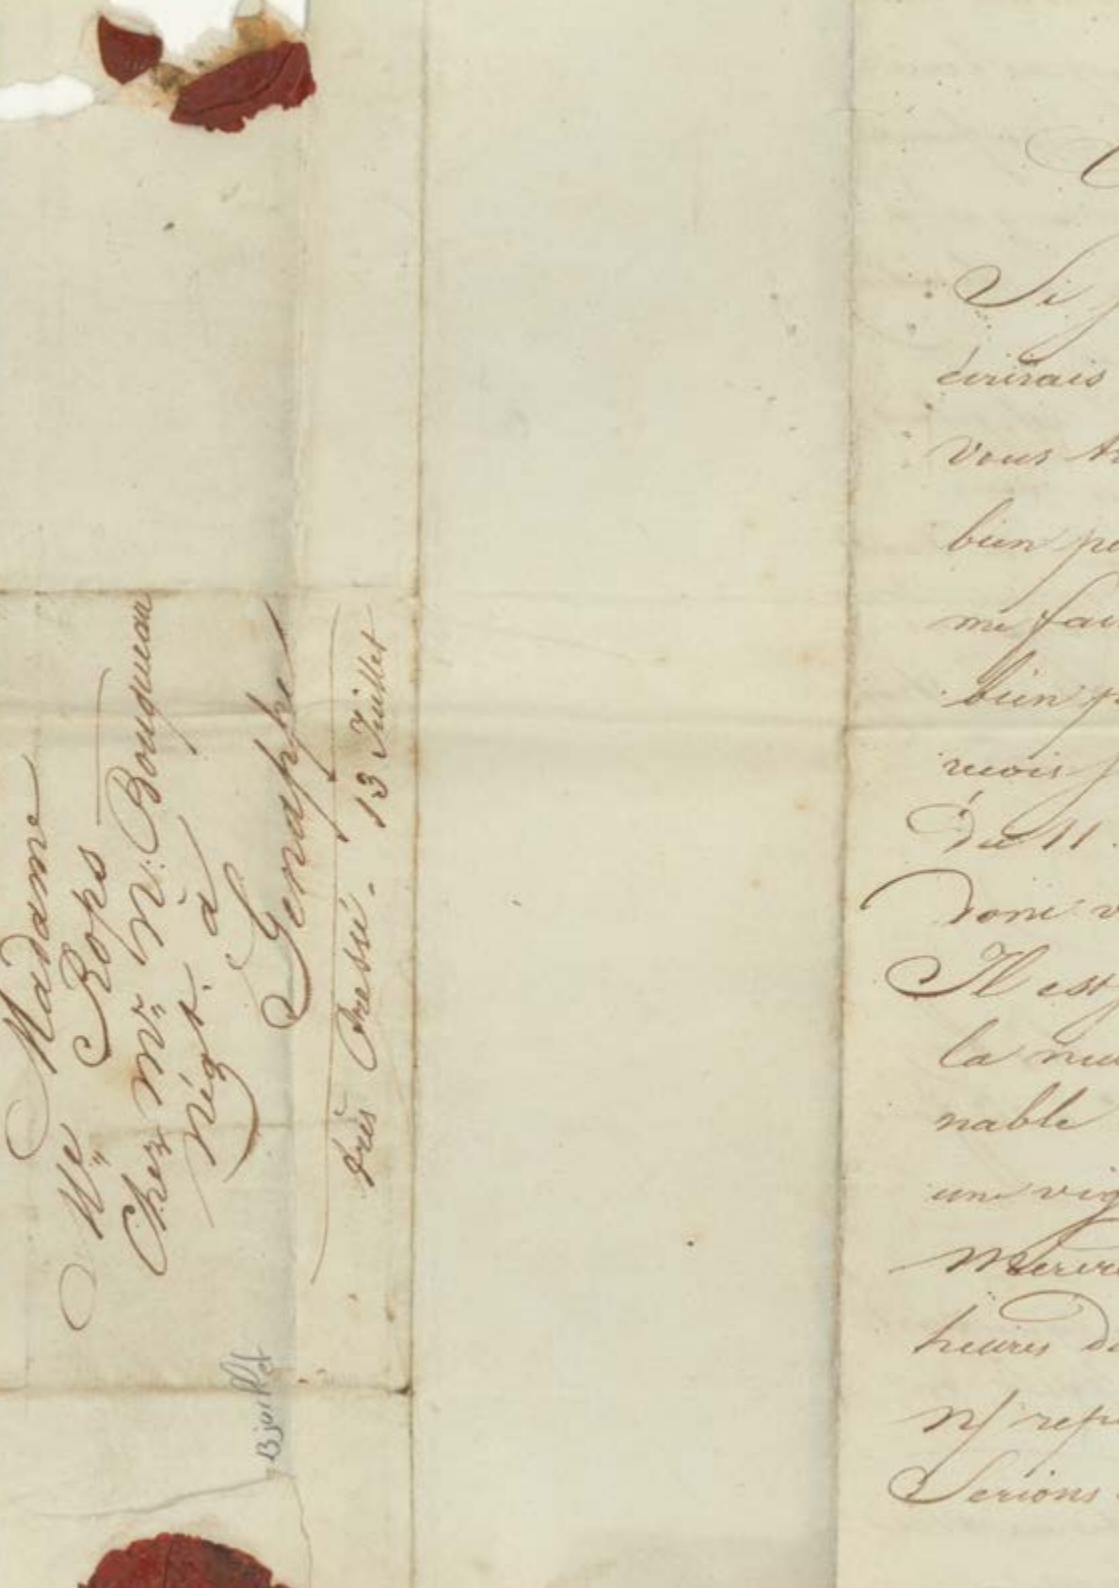 Madame
Ve Rops
Chez Mr. N. Bouqueau
Négt. à
Genappe
très Pressé. 13 Juillet
13 juillet
Si j
écrirais
vous
bien
me fai
bien
reçois
du 11.
donc v
Il est
la nui
nable
une vig
heures du
n/
Serions